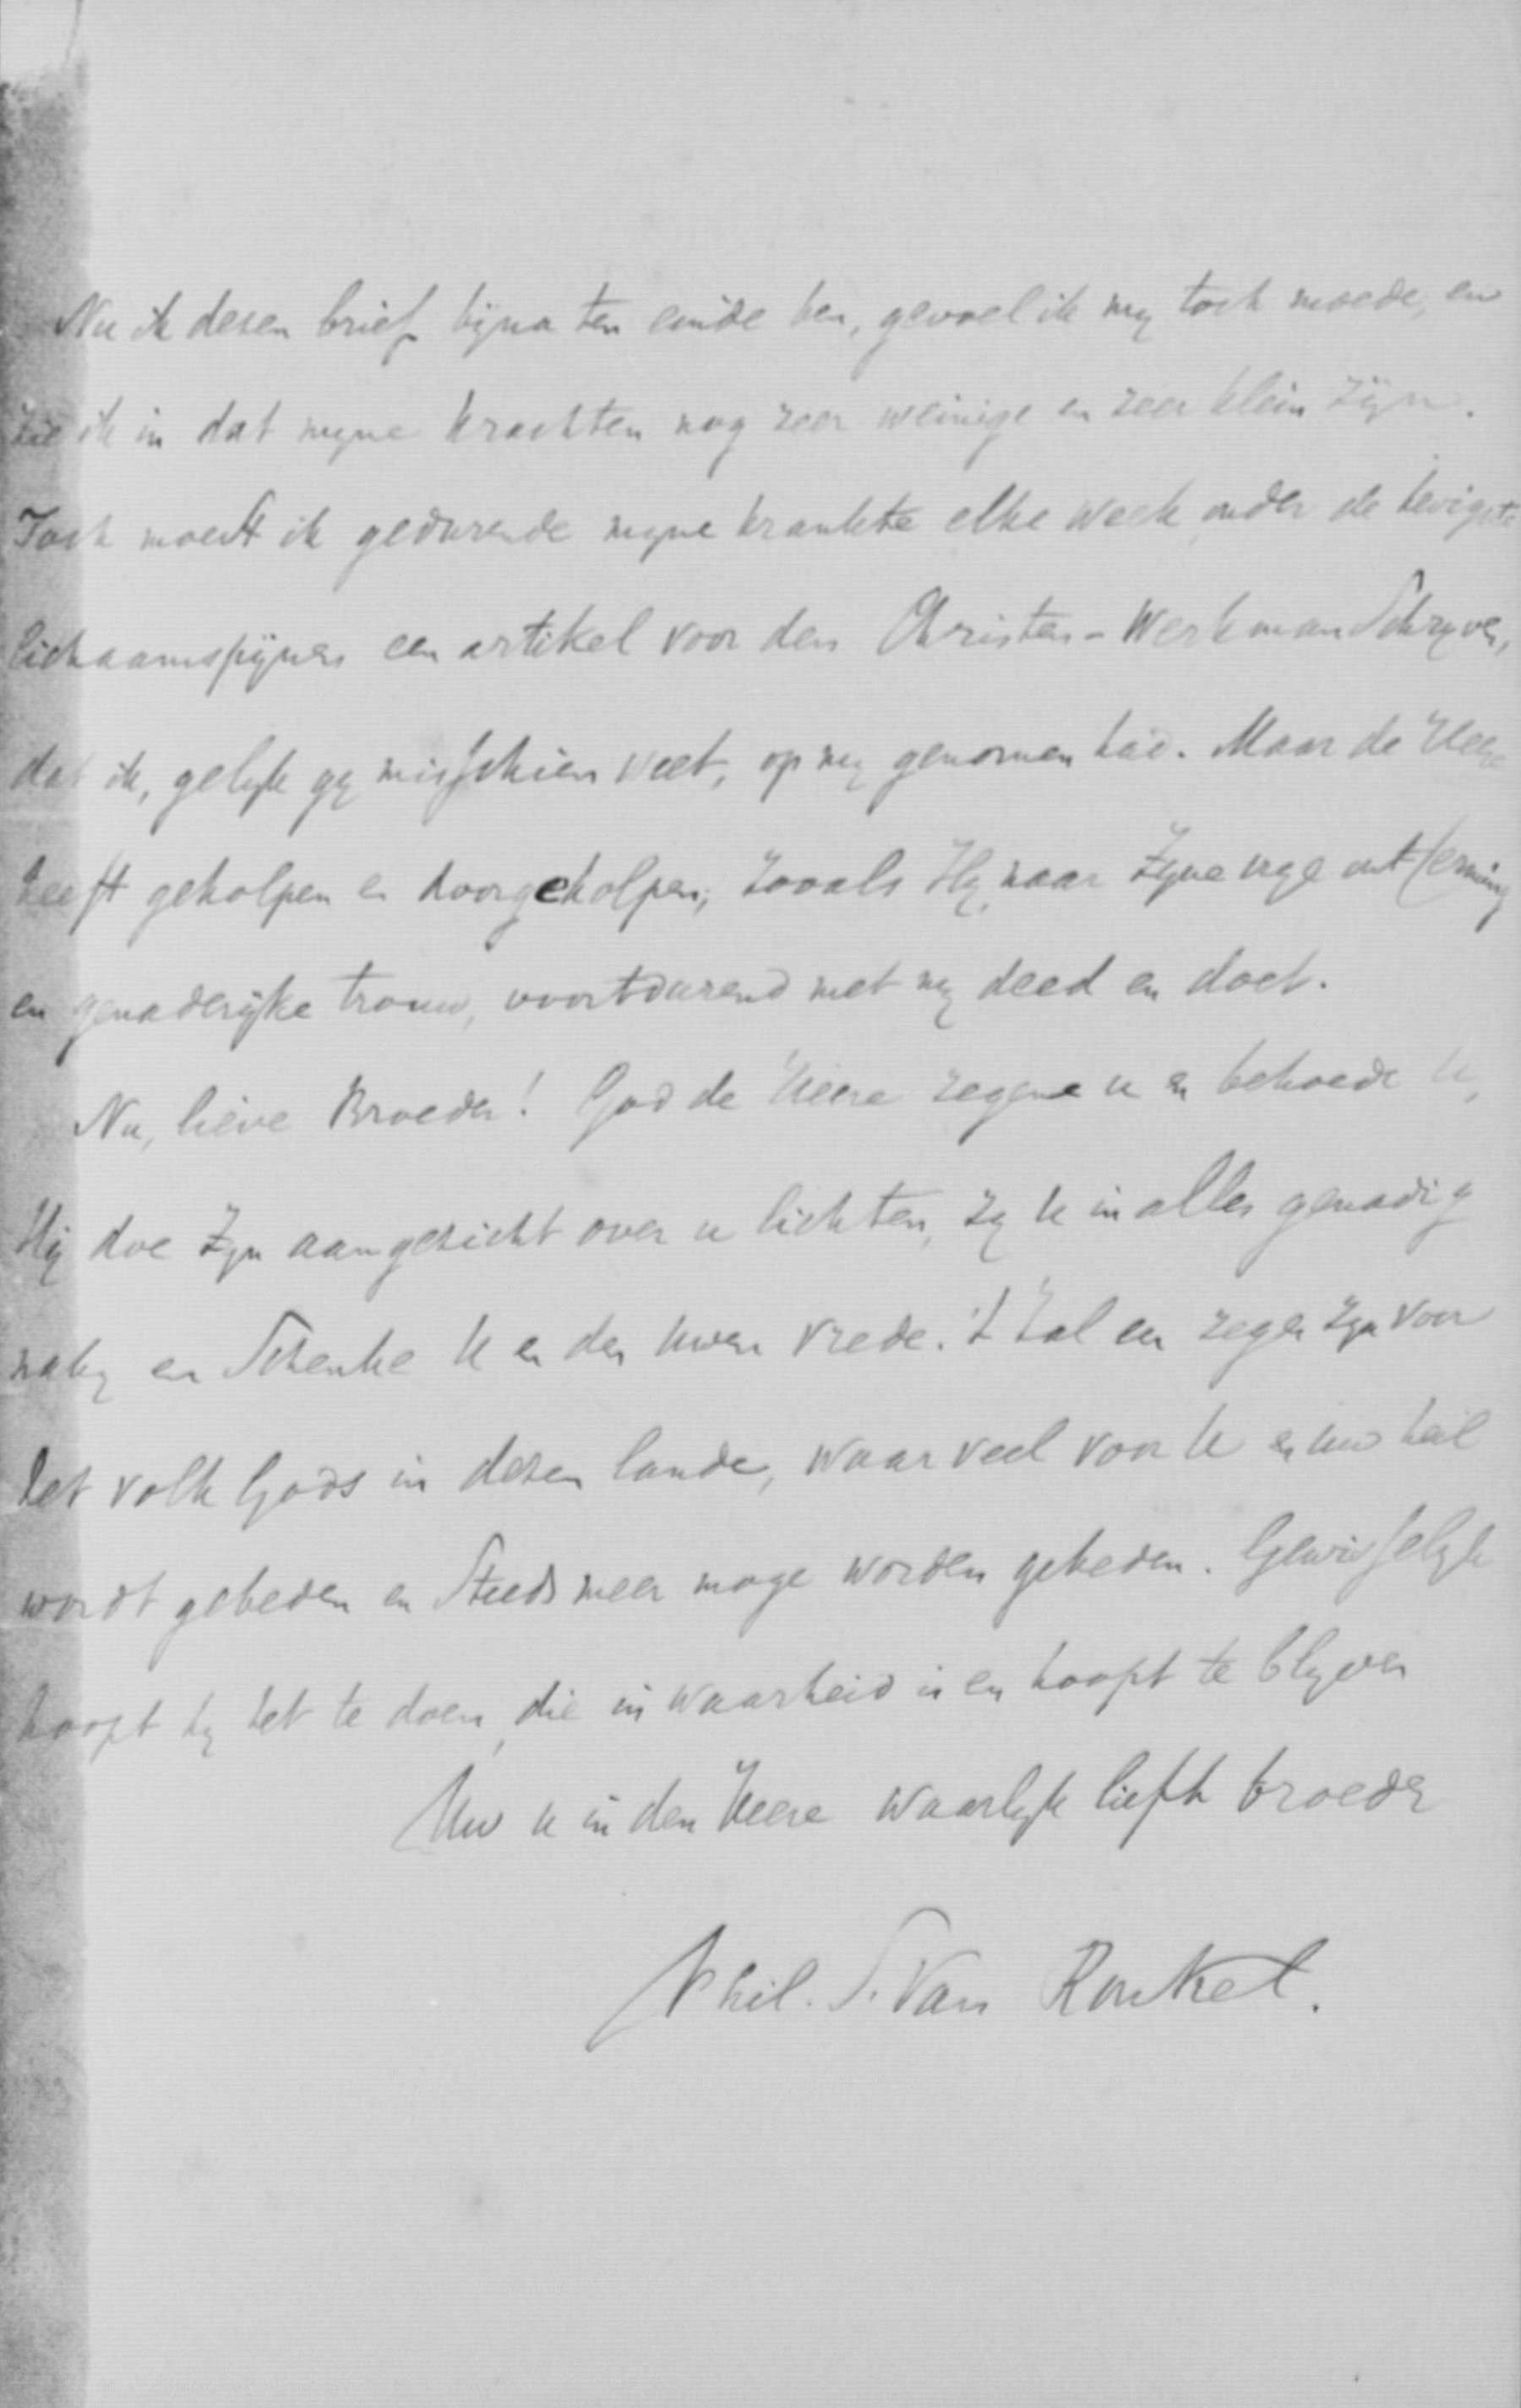 Nu ik dezen brief byna ten einde ben, gevoel ik my toch moede, en
zie ik in dat myne krachten nog zeer weinige en zeer klein zyn.
Toch moest ik gedurende myne krankte elke week, onder de hevigste
lichaamspynen een artikel voor den Christen-Werkman Schryven,
dat ik, gelyk gy misschien weet, op my genomen had. Maar de Heere
heeft geholpen en doorgeholpen, zooals Hy, naar Zyne vrye ontferming
en genaderyke trouw, voortdurend met my deed en doet.
Nu, lieve Broeder! God de Heere zegene u en behoede U,
Hy doe Zyn aangezicht over u lichten, zy U in alles genadig
naby en Schenke U en den Uwen vrede. 't Zal een zegen zyn voor
het volk Gods in dezen lande, waar veel voor U en uw heil
wordt gebeden en Steeds meer moge worden gebeden. Gewisselyk
hoopt hy het te doen, die in waarheid is en hoopt te blyven
Uw u in den Heere waarlyk liefh broeder
Phil. S. Van Ronkel.